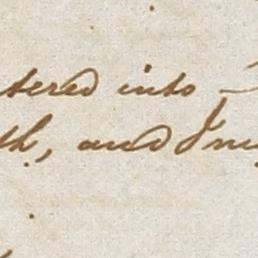 tered into
th, and